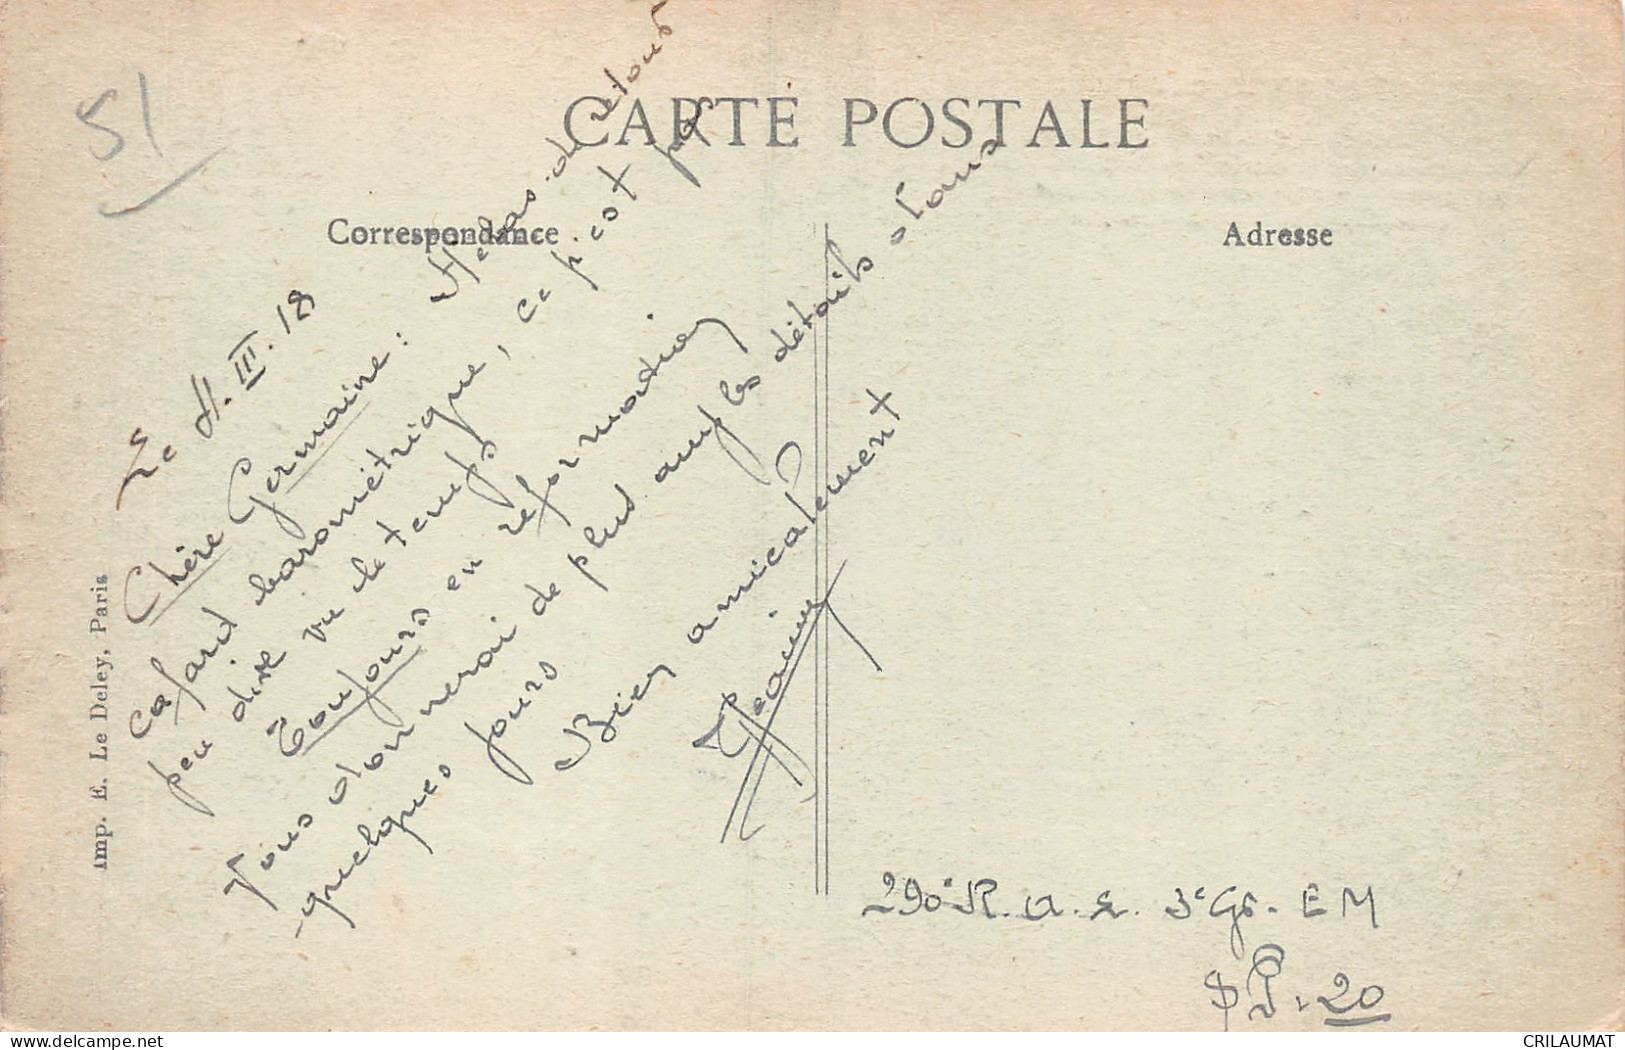 51
CARTE POSTALE
Correspondance
Adresse
Le 11.III.18
Chère Germaine : Hélas de retour
cafard barométrique, ce n'est pas
peu dire vu le temps
Toujours en reformation
Vous donnerai de plus amples détails dans
quelques jours
Bien amicalement
290e R.A.L. 3e Ge. EM
SP. 20
Imp. E. Le Deley, Paris
CRILAUMAT